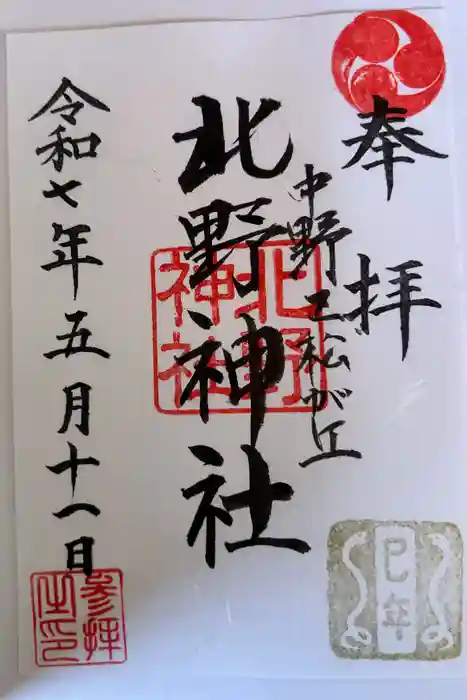 奉拝
巳年
中野区松が丘
北野神社
北野神社
令和七年五月十一日
参拝之印